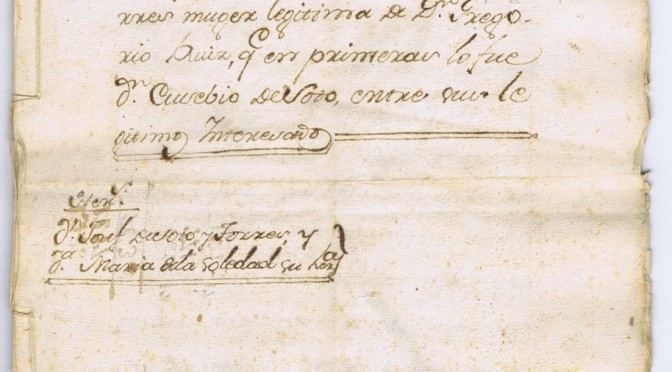 rres muger legitima de Dn. Grego-
rio Ruiz, q en primeras lo fue
Dn. Eusebio de Soto, entre sus le
gitimos Interesado
Dn. Josef de Soto y Torres, y
Da. Maria de la Soledad su